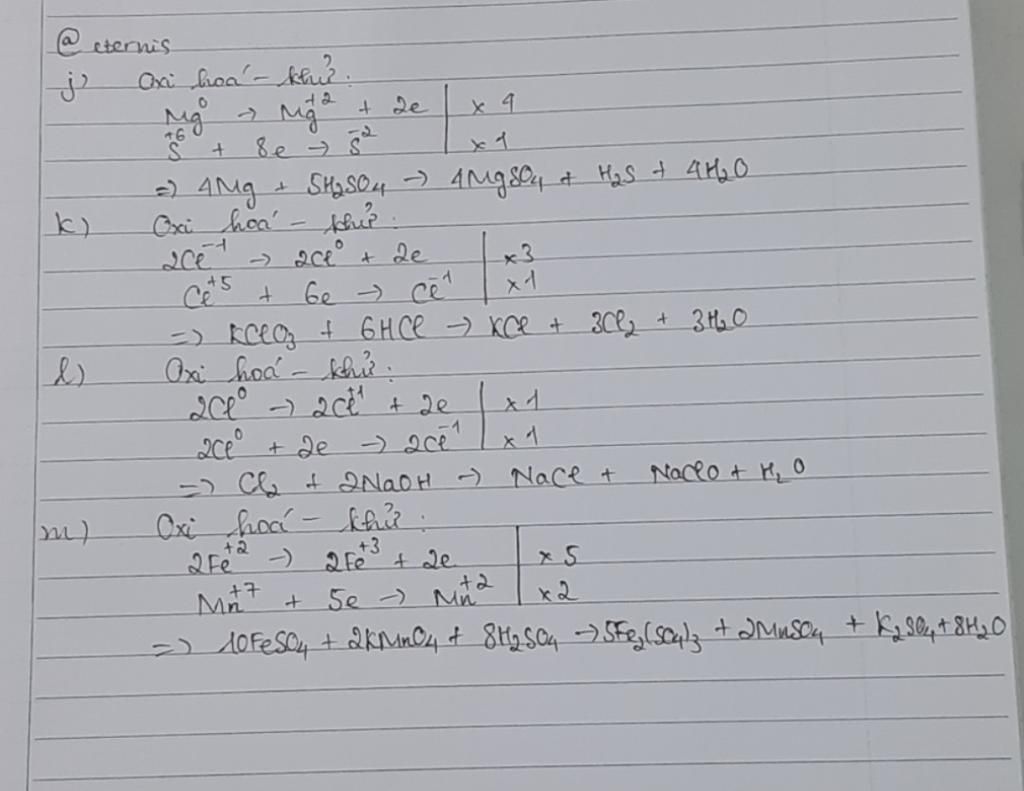 @ eternis
j) Oxi hoá - khử:
Mg⁰ → Mg⁺² + 2e | x 4
S⁺⁶ + 8e → S⁻² | x 1
=> 4Mg + 5H₂SO₄ → 4MgSO₄ + H₂S + 4H₂O
k) Oxi hoá - khử:
2Cl⁻¹ → 2Cl⁰ + 2e | x3
Cl⁺⁵ + 6e → Cl⁻¹ | x1
=> KClO₃ + 6HCl → KCl + 3Cl₂ + 3H₂O
l) Oxi hoá - khử:
2Cl⁰ → 2Cl⁺¹ + 2e | x 1
2Cl⁰ + 2e → 2Cl⁻¹ | x 1
=> Cl₂ + 2NaOH → NaCl + NaClO + H₂O
m) Oxi hoá - khử:
2Fe⁺² → 2Fe⁺³ + 2e | x 5
Mn⁺⁷ + 5e → Mn⁺² | x 2
=> 10FeSO₄ + 2KMnO₄ + 8H₂SO₄ → 5Fe₂(SO₄)₃ + 2MnSO₄ + K₂SO₄ + 8H₂O